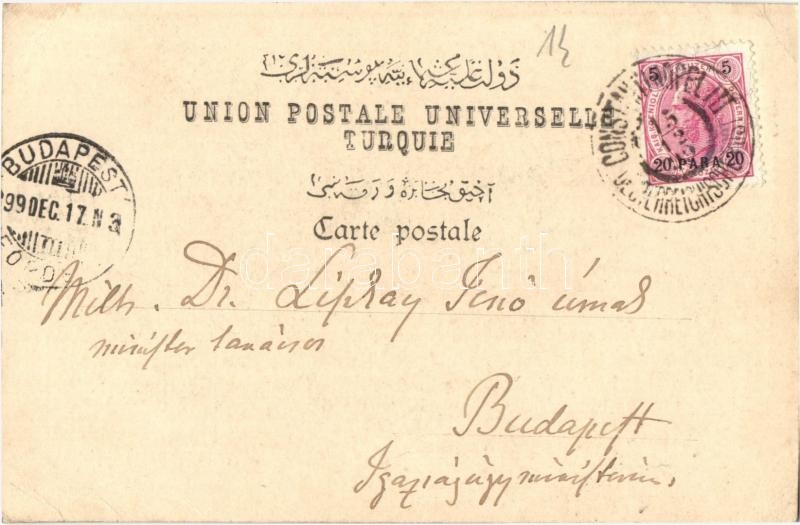 14
دولت عليه عثمانيه پوسته لرى
UNION POSTALE UNIVERSELLE
TURQUIE
آچيق مخابره ورقه سى
Carte postale
5 5
20 PARA 20
CONSTANTINOPEL III
OESTERREICHISCHE
BUDAPEST
99 DEC. 17. N 3
darabanth
Mélt. Dr. Lipkay Jenő úrnak
miniszter tanácsos
Budapest
Igazságügyminisztérium.